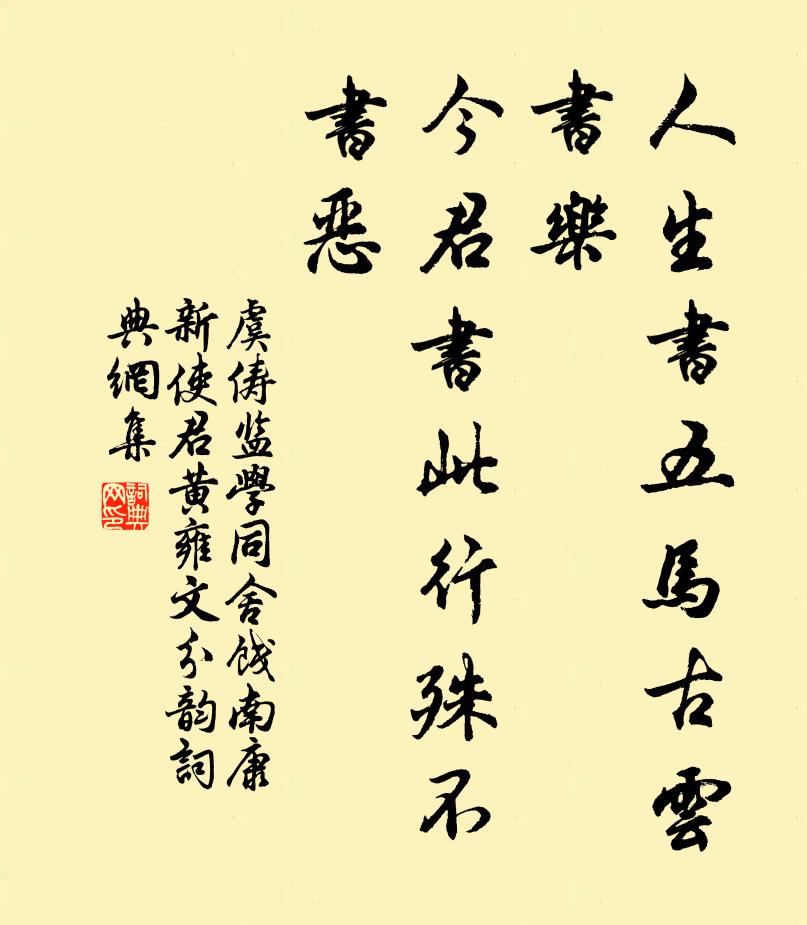 人生書五馬古雲
書樂
今君書此行殊不
書惡
虞儔监學同舍餞南康
新使君黄雍文分韵詞
典網集
詞典网印